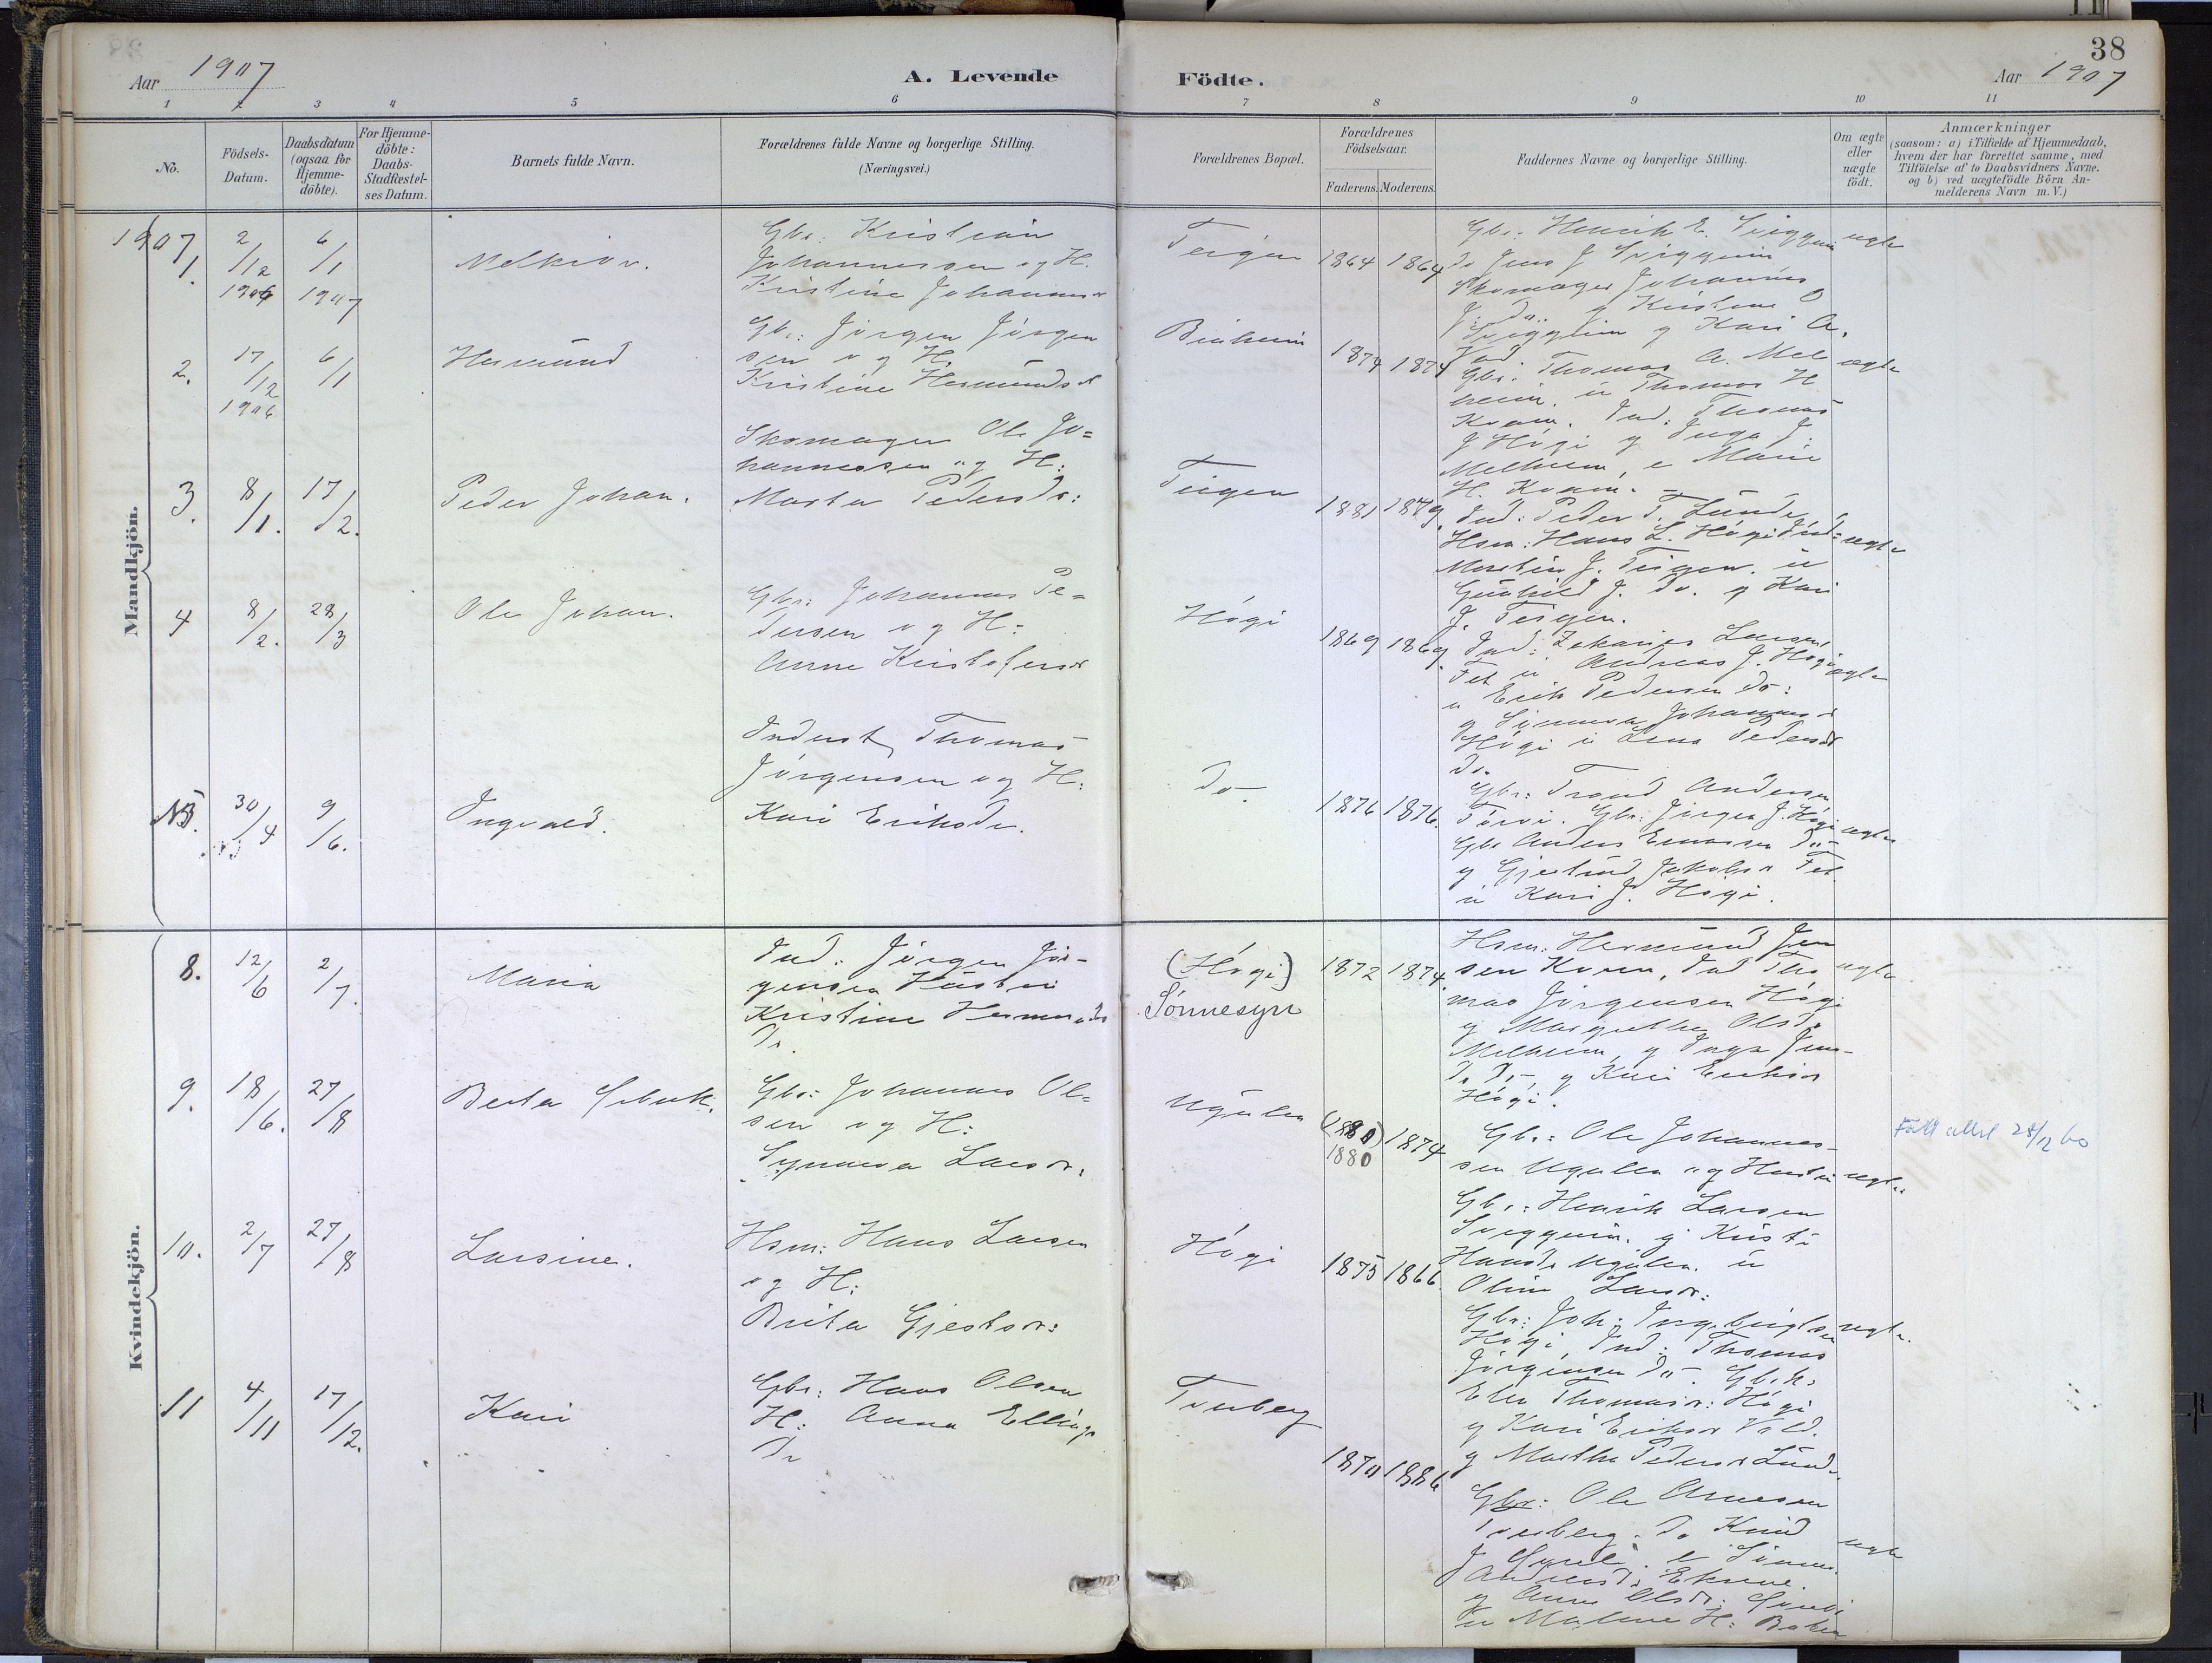 38
Aar 1907
A. Levende
Födte.
Aar 1907
1 2 3 4 5 6 7 8 9 10 11
No.
Födsels-
Datum.
Daabsdatum
(ogsaa for
Hjemme-
döbte).
For Hjemme-
döbte:
Daabs-
Stadfæstel-
ses Datum.
Barnets fulde Navn.
Forældrenes fulde Navne og borgerlige Stilling.
(Næringsvei.)
Forældrenes Bopæl.
Forældrenes
Födselsaar.
Faderens. Moderens.
Faddernes Navne og borgerlige Stilling.
Om ægte
eller
uægte
födt.
Anmærkninger
(saasom: a) i Tilfælde af Hjemmedaab,
hvem der har forrettet samme, med
Tilföielse af to Daabsvidners Navne.
og b) ved uægtefödte Börn An-
melderens Navn m. V.)
Mandkjön.
1907
1. 2/12 1906 6/1 1907
Melkior.
Gbr: Kristian
Johannessen og H.
Kristine Johannesd
Teigen
1864 1864
Gbr. Henrik E.
do Jens J
Skomager Johannes
J. do. g Kristine O
g Kari A.
ægte
2. 17/12 1906 6/1
Hermund
Gbr: Jörgen Jörgen
sen og H.
Kristine Hermundsd
1874 1874
Gbr. Thomas A. Mel
heim. u Thomas H
Kvam. Ind: Thomas
J Högi g Inga J.
Melheim, u Marie
H. Kvam.
ægte
3. 8/1. 17/2.
Peder Johan.
Skomager Ole Jo=
hannessen og H:
Marta Pedersdr:
Teigen
1881 1879
Ind: Peder T. Lunde,
Hsm: Hans L. Högi Ind:
Martin J. Teigen. u
Gunhild J. do. g Kari
J. Teigen.
ægte
4 8/2. 28/3
Ole Johan.
Gbr: Johannes Pe=
dersen og H:
Anne Kristofersd
Högi
1869 1869
Ind: Zakarias Larsen,
Fet u Andreas J. Högi
u Erik Pedersen do:
g Synneva Johannesd
Högi u Lena Pedersd
do.
ægte
5. 30/4 9/6.
Ingvald.
Inderst Thomas
Jörgensen og H:
Kari Eriksdr.
do.
1876 1876.
Gbr: Trond Andersen
Gbr: Jörgen J. Högi
Gbr Anders Enassen do
g Gjertrud Jakobsd Fet.
u Kari J. Högi.
ægte
Kvindekjön.
8. 12/6 2/7.
Maria
Ind: Jörgen Jör-
gensen Hustru
Kristine Hermunds
dr.
(Högi)
Sønnesyn
1872 1874.
Hsm. Hermund Jen
sen Kvam, Ind Tho
mas Jörgensen Högi
g Margrethe Olsdr
Melheim, g Inga Jens-
dr do, g Kari Eriksd
Högi.
ægte
9. 18/6. 27/8
Berta
Gbr: Johannes Ol=
sen og H:
Synneva Larsdr.
Ugulen
(1880)
1880
1874
Gbr: Ole Johannes-
sen Ugulen og Hustru
Gbr: Henrik Larsen
g Kristi
Hansdr Ugulen. u
Oline Larsdr:
ægte
28/12 60
10. 2/7 27/8
Larsine.
Hsm: Hans Larsen
og H:
Brita Gjestsdr:
Högi
1875 1866.
Gbr: Joh. Ingebrigtsen
Högi, Ind: Thomas
Jörgensen do. Gbr.
Elen Thomasdr: Högi
g Kari Eriksd
g Martha Pedersd Lund.
ægte.
11 4/11 17/12.
Kari
Gbr: Hans Olsen
H: Anna Ellings
dr
Tverberg
1870 1886
Gbr: Ole Arnesen
Tverberg. do Knud
Andersd.
g Anna Olsdr.
u Malene H:
ægte